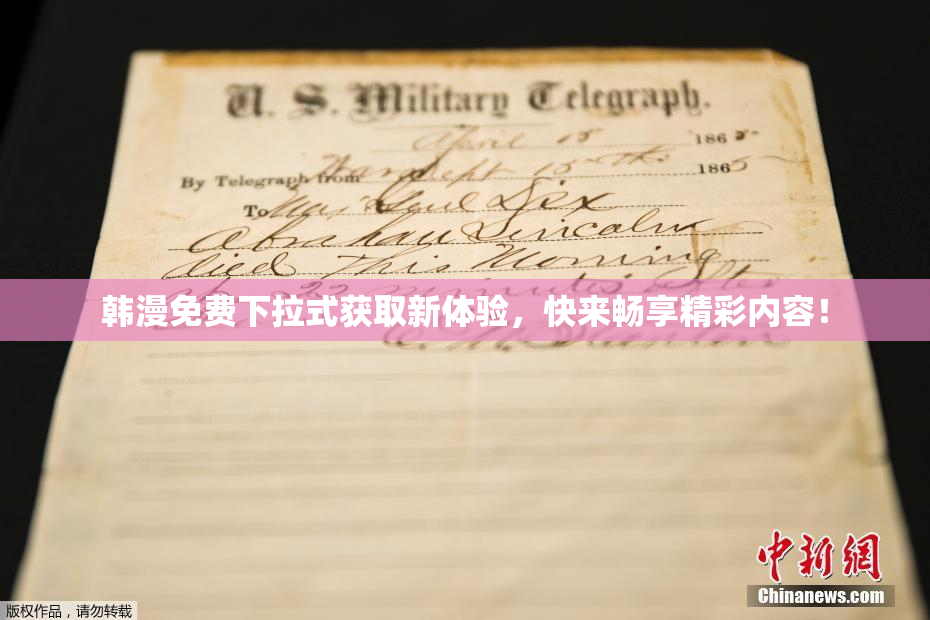 U. S. Military Telegraph.
April 15 1865
By Telegraph from War Dept 15th 1865
To Maj Genl Dix
Abraham Lincoln
died This Morning
22 minutes after
韩漫免费下拉式获取新体验，快来畅享精彩内容！
中新网
Chinanews.com
版权作品，请勿转载